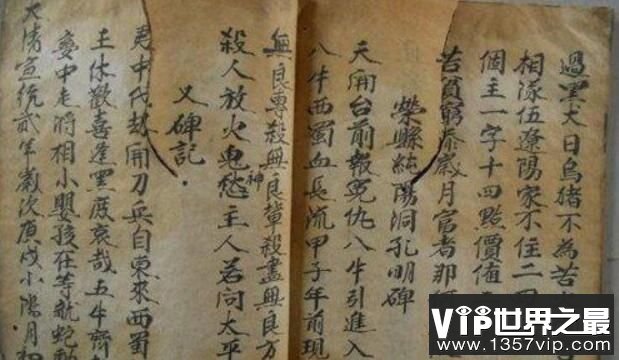 過漢大日烏豬不為苦
相逐伍遼陽家不住二
個主一字十四點價值
苦貧窮泰歲月富者那
榮縣純陽洞孔明碑
天開台前報冤仇八牛引進入
八牛西蜀血長流甲子年前現
無良專殺無良輩殺盡無良方
殺人放火鬼神愁主人若問太平
又碑記.
中代劫用刀兵自東來西蜀
王休歡喜逢黑度哀哉五牛齊
中走將相小嬰孩在等就蛇動
大清宣統貳年歲次庚戌小陽月初
VIP世界之最
www.1357vip.com